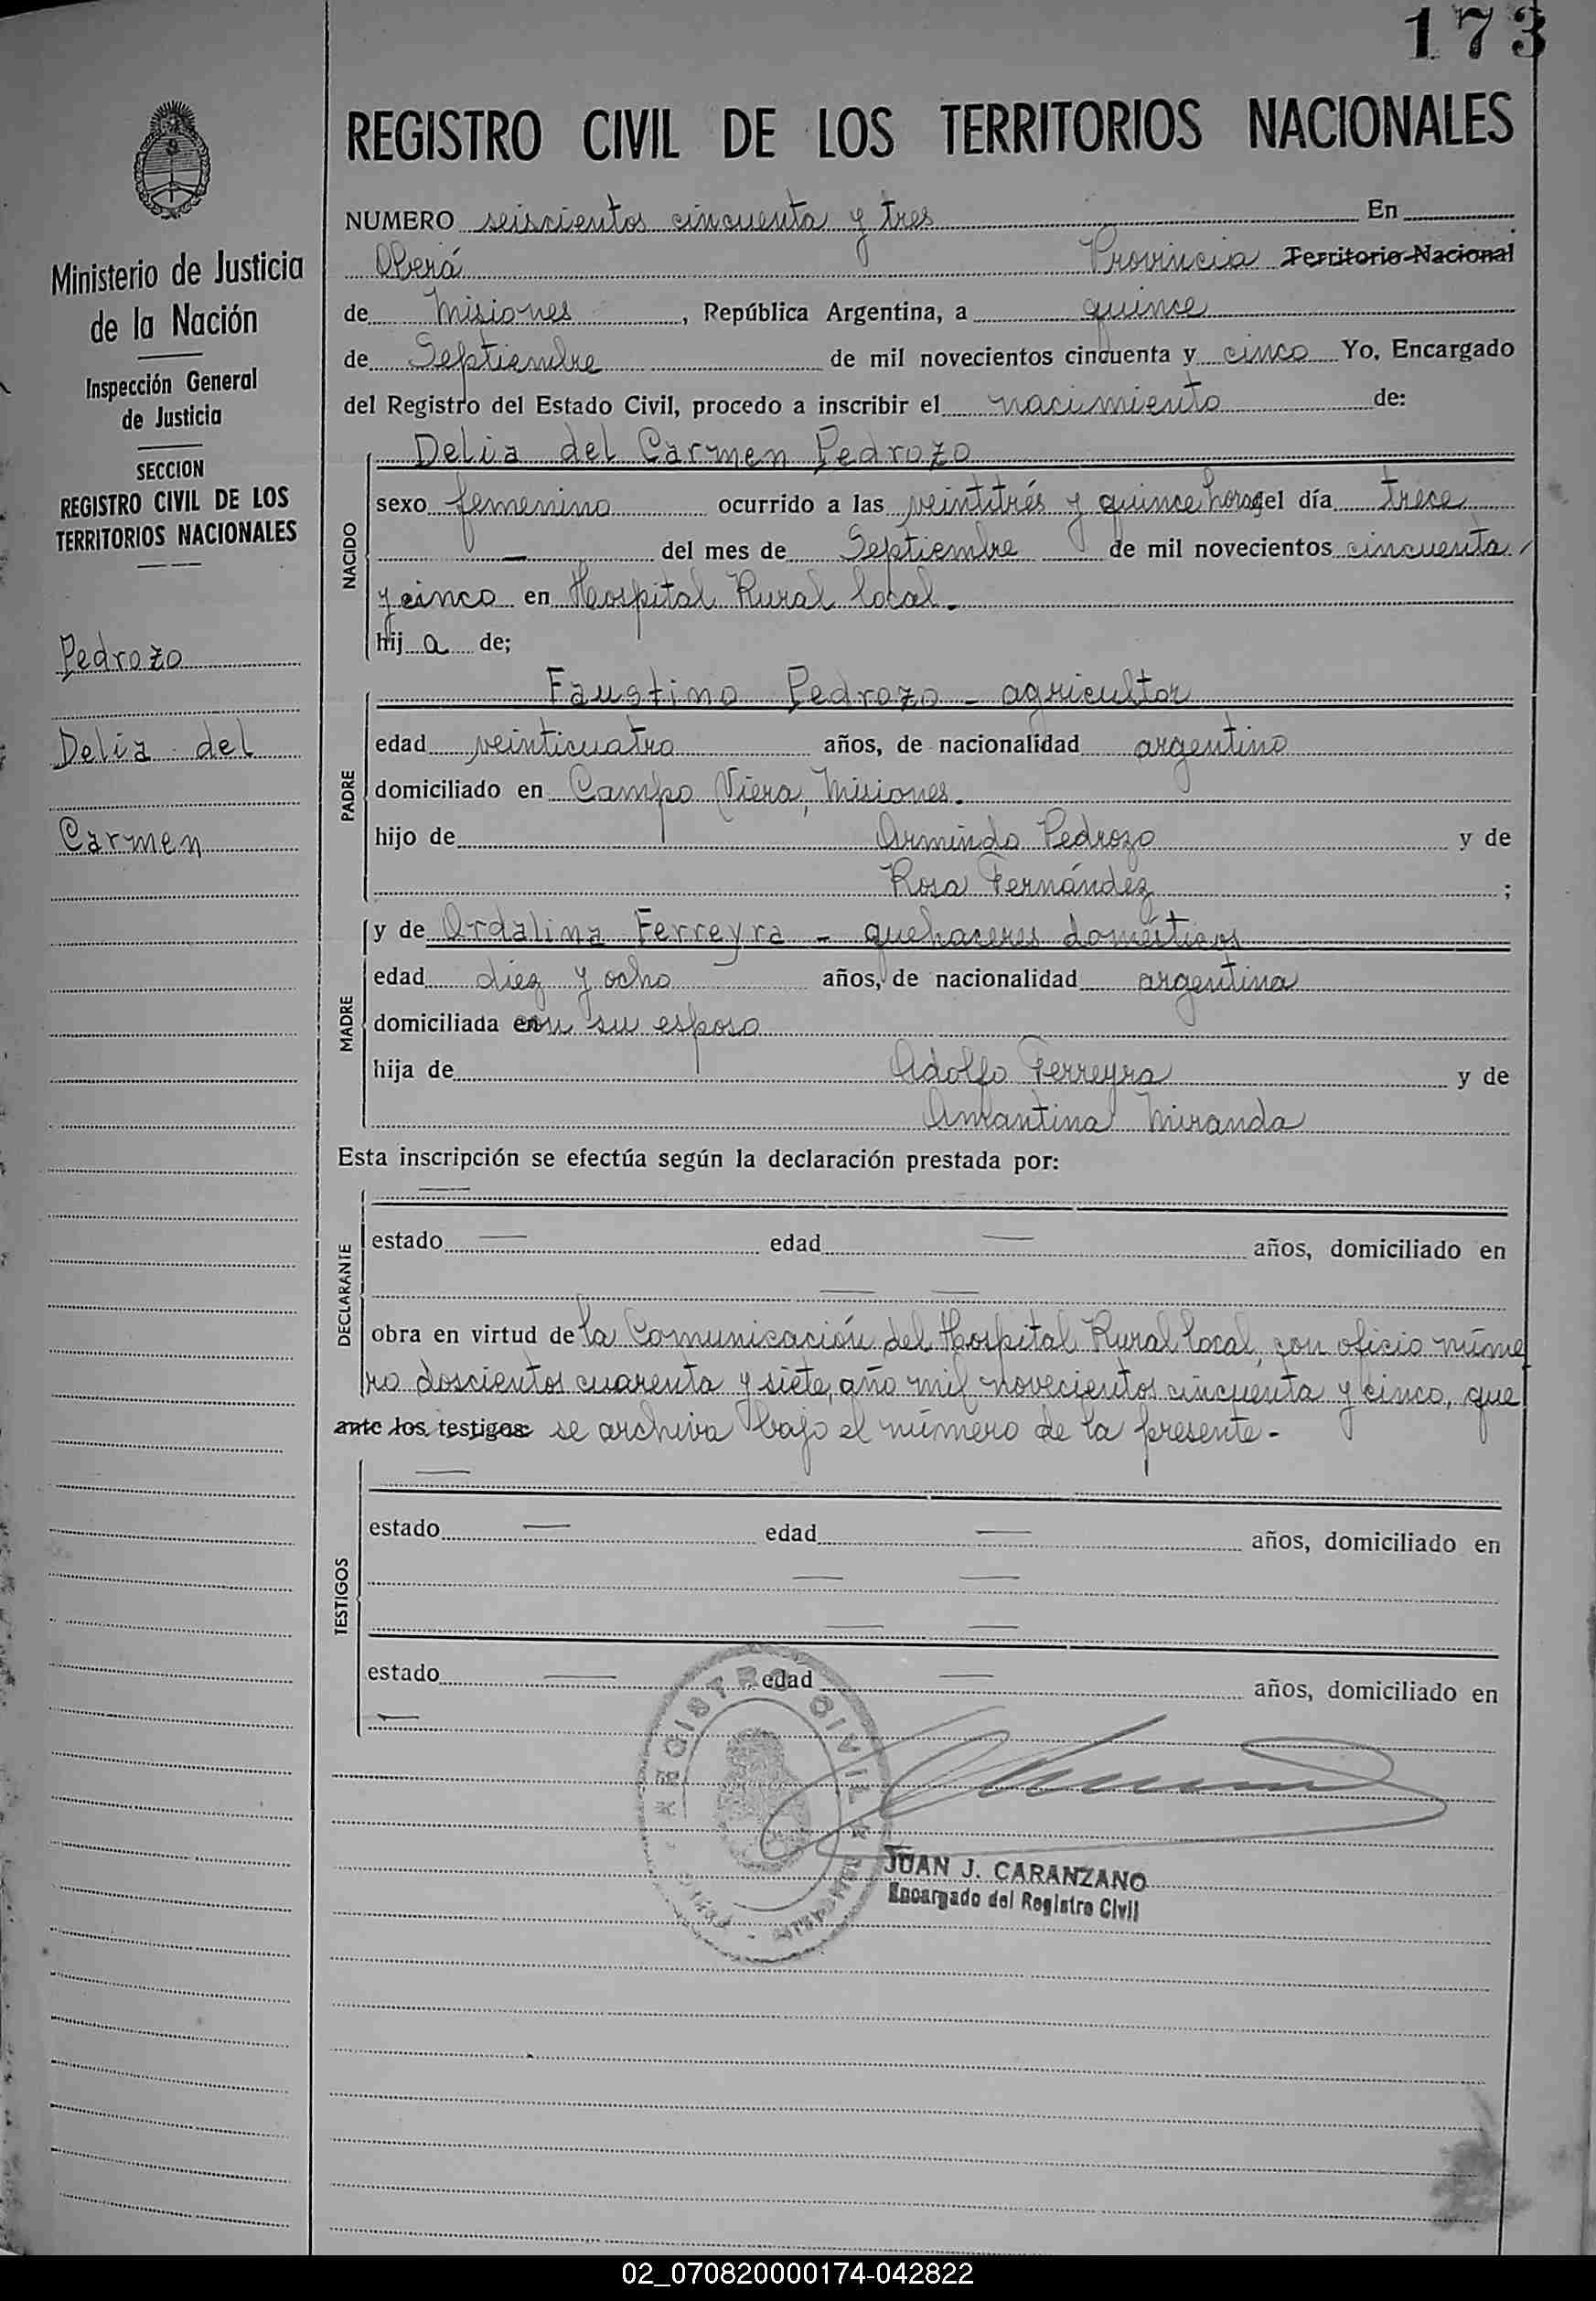 173
REGISTRO CIVIL DE LOS TERRITORIOS NACIONALES
Ministerio de Justicia
de la Nación
Inspección General
de Justicia
SECCION
REGISTRO CIVIL DE LOS
TERRITORIOS NACIONALES
Pedrozo
Delia del
Carmen
NUMERO seiscientos cincuenta y tres En
Oberá Provincia Territorio Nacional
de Misiones, República Argentina, a quince
de Septiembre de mil novecientos cincuenta y cinco Yo, Encargado
del Registro del Estado Civil, procedo a inscribir el nacimiento de:
NACIDO
Delia del Carmen Pedrozo
sexo femenino ocurrido a las veintitrés y quince horas el día trece
del mes de Septiembre de mil novecientos cincuenta
y cinco en Hospital Rural local.
hij a de;
PADRE
Faustino Pedrozo - agricultor
edad veinticuatro años, de nacionalidad argentino
domiciliado en Campo Viera, Misiones.
hijo de Armindo Pedrozo y de
Rosa Fernández ;
MADRE
y de Ordalina Ferreyra - quehaceres domésticos
edad diez y ocho años, de nacionalidad argentina
domiciliada con su esposo
hija de Adolfo Ferreyra y de
Amantina Miranda
Esta inscripción se efectúa según la declaración prestada por:
DECLARANTE
estado edad años, domiciliado en
obra en virtud de la Comunicación del Hospital Rural local, con oficio núme
ro doscientos cuarenta y siete, año mil novecientos cincuenta y cinco, que
ante los testigos: se archiva bajo el número de la presente.-
TESTIGOS
estado edad años, domiciliado en
estado edad años, domiciliado en
REGISTRO CIVIL
JUAN J. CARANZANO
Encargado del Registro Civil
02_070820000174-042822